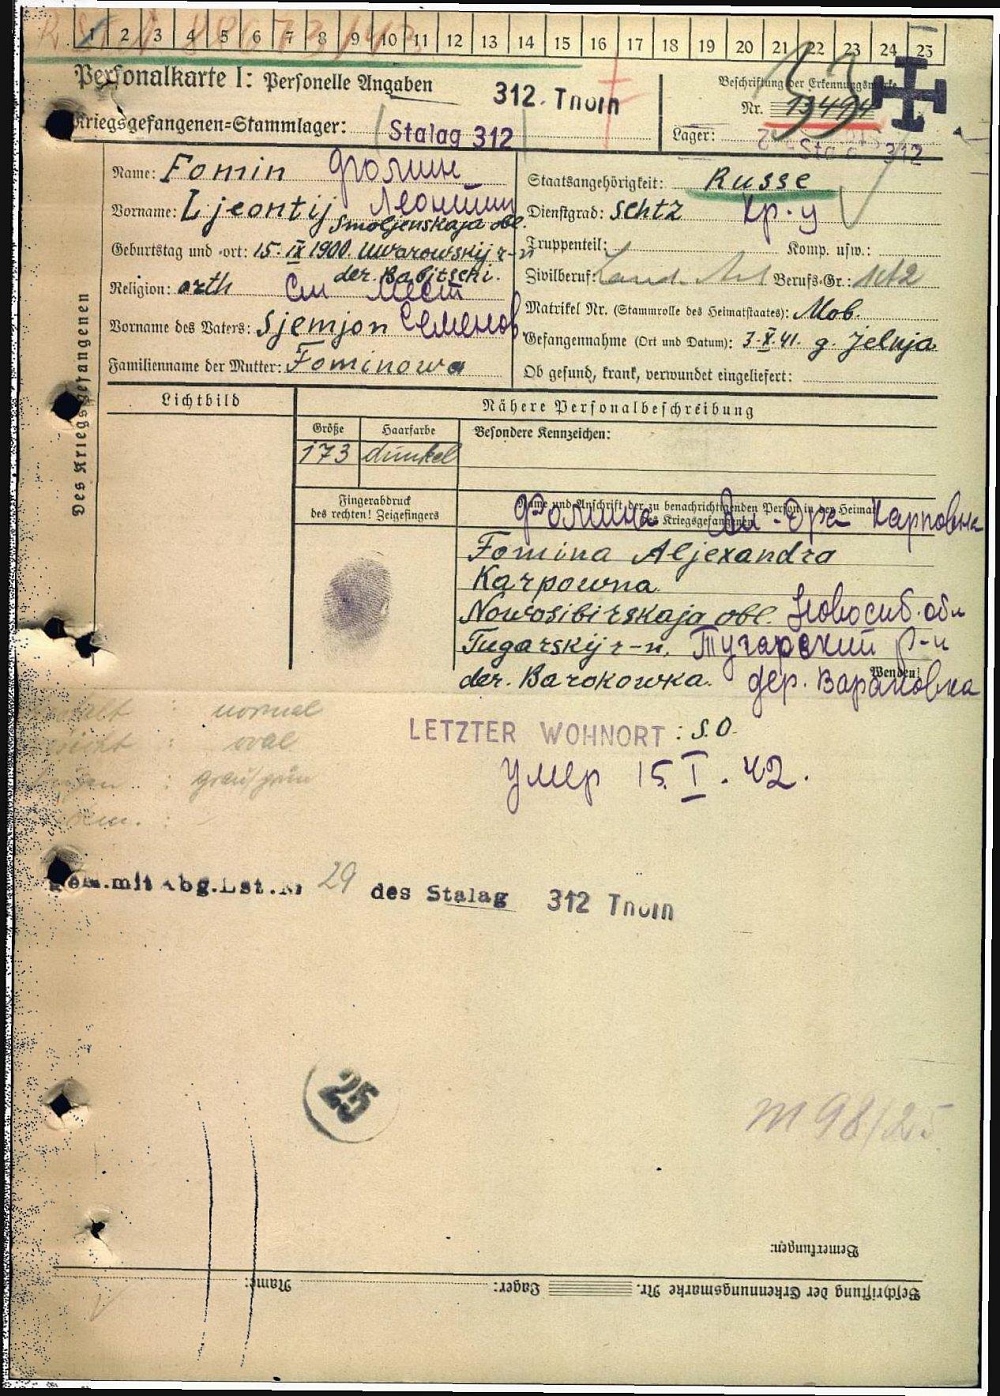 1 2 3 4 5 6 7 8 9 10 11 12 13 14 15 16 17 18 19 20 21 22 23 24 25
Personalkarte I: Personelle Angaben
312. Thorn
Beschriftung der Erkennungsmarke
Nr.
Kriegsgefangenen=Stammlager: Stalag 312
Lager: Stalag 312
Des Kriegsgefangenen
Name: Fomin Фомин
Vorname: Ljeontij Леонтий
Smoljenskaja obl.
Geburtstag und -ort: 15. IX 1900. Uwarowskij r-n
der. Babitschi.
Religion: orth См Мест
Vorname des Vaters: Sjemjon Семенов
Familienname der Mutter: Fominowa
Staatsangehörigkeit: Russe
Dienstgrad: Schtz кр-ц
Truppenteil: Komp. usw.:
Zivilberuf: Land. Arb Berufs-Gr.:
Matrikel Nr. (Stammrolle des Heimatstaates): Mob.
Gefangennahme (Ort und Datum): 3.X.41. g. Jelnja
Ob gesund, krank, verwundet eingeliefert:
Lichtbild
Nähere Personalbeschreibung
Größe Haarfarbe Besondere Kennzeichen:
173 dunkel
Fingerabdruck
des rechten! Zeigefingers
Name und Anschrift der zu benachrichtigenden Person in der Heimat
des Kriegsgefangenen
Фомина Ал-дра Карповна
Fomina Aljexandra
Karpowna
Nowosibirskaja obl. Новосиб. обл
Tugarskij r-n. Тугарский р-н
der. Barokowka. дер. Бараковка
Wenden!
Gestalt : normal
Gesicht : oval
Augen : grau/grün
LETZTER WOHNORT: S.O.
умер 15. I. 42.
Gem. mit Abg. Lst. Nr 29 des Stalag 312 Thorn
25
M 98/25
Bemerkungen:
Beschriftung der Erkennungsmarke Nr. Lager: Name: